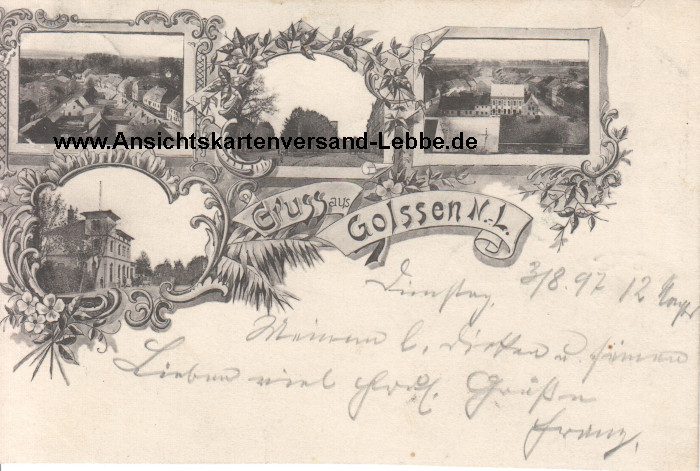 www.Ansichtskartenversand-Lebbe.de
Gruss aus
Golssen N.-L.
Dienstag, 3/8.97 12
Meinem l. u.
Lieben viel Grüße
Franz.